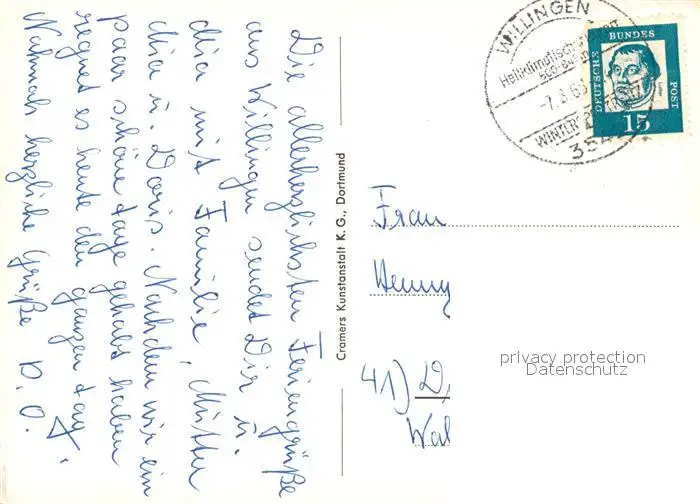 Die allerherzlichsten Feriengrüße
aus Willingen sendet Dir u.
Mia mit Familie, Mutter
Mia u. Doris. Nachdem wir ein
paar schöne Tage gehabt haben
regnet es heute den ganzen Tag.
Nochmals herzliche Grüße D. O.
Cramers Kunstanstalt K. G., Dortmund
WILLINGEN
Heilklimatischer
500-84
-7.8.63
WINTERSPORTPLATZ
354
DEUTSCHE BUNDES POST
15
Frau
Henny
41) D
Wal
privacy protection
Datenschutz